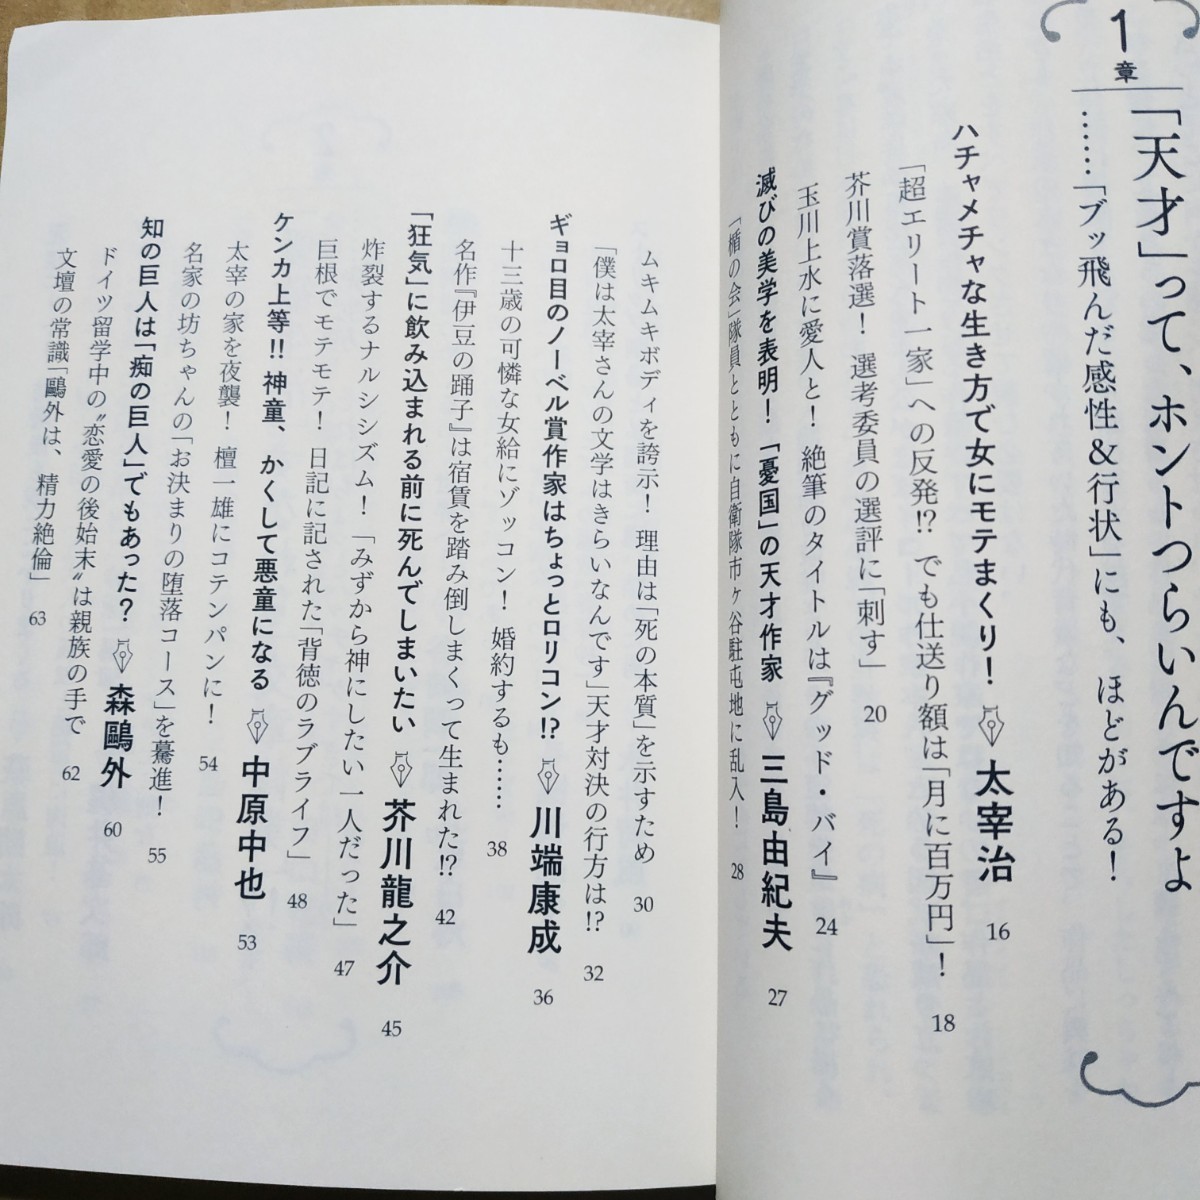 1章
「天才」って、ホントつらいんですよ
……「ブッ飛んだ感性&行状」にも、ほどがある！
ハチャメチャな生き方で女にモテまくり！ 太宰治 16
「超エリート一家」への反発!? でも仕送り額は「月に百万円」！ 18
芥川賞落選！ 選考委員の選評に「刺す」 20
玉川上水に愛人と！ 絶筆のタイトルは『グッド・バイ』 24
滅びの美学を表明！「憂国」の天才作家 三島由紀夫 27
「楯の会」隊員とともに自衛隊市ヶ谷駐屯地に乱入！ 28
ムキムキボディを誇示！ 理由は「死の本質」を示すため 30
「僕は太宰さんの文学はきらいなんです」天才対決の行方は!? 32
ギョロ目のノーベル賞作家はちょっとロリコン!? 川端康成 36
十三歳の可憐な女給にゾッコン！ 婚約するも…… 38
名作『伊豆の踊子』は宿賃を踏み倒しまくって生まれた!? 42
「狂気」に飲み込まれる前に死んでしまいたい 芥川龍之介 45
炸裂するナルシシズム！「みずから神にしたい一人だった」 47
巨根でモテモテ！ 日記に記された「背徳のラブライフ」 48
ケンカ上等!! 神童、かくして悪童になる 中原中也 53
太宰の家を夜襲！ 檀一雄にコテンパンに！ 54
名家の坊ちゃんの「お決まりの堕落コース」を驀進！ 55
知の巨人は「痴の巨人」でもあった？ 森鷗外 60
ドイツ留学中の〝恋愛の後始末〟は親族の手で 62
文壇の常識「鷗外は、精力絶倫」 63